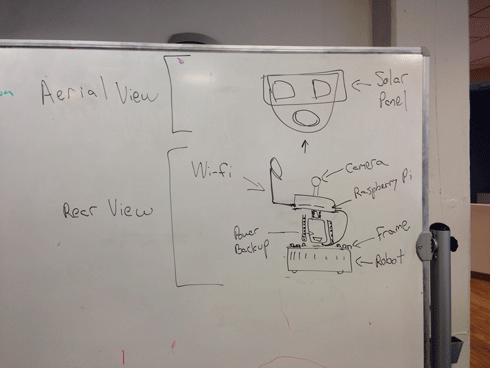 Aerial View
Solar
Panel
Wi-fi
Camera
Raspberry Pi
Rear View
Power
Backup
Frame
Robot